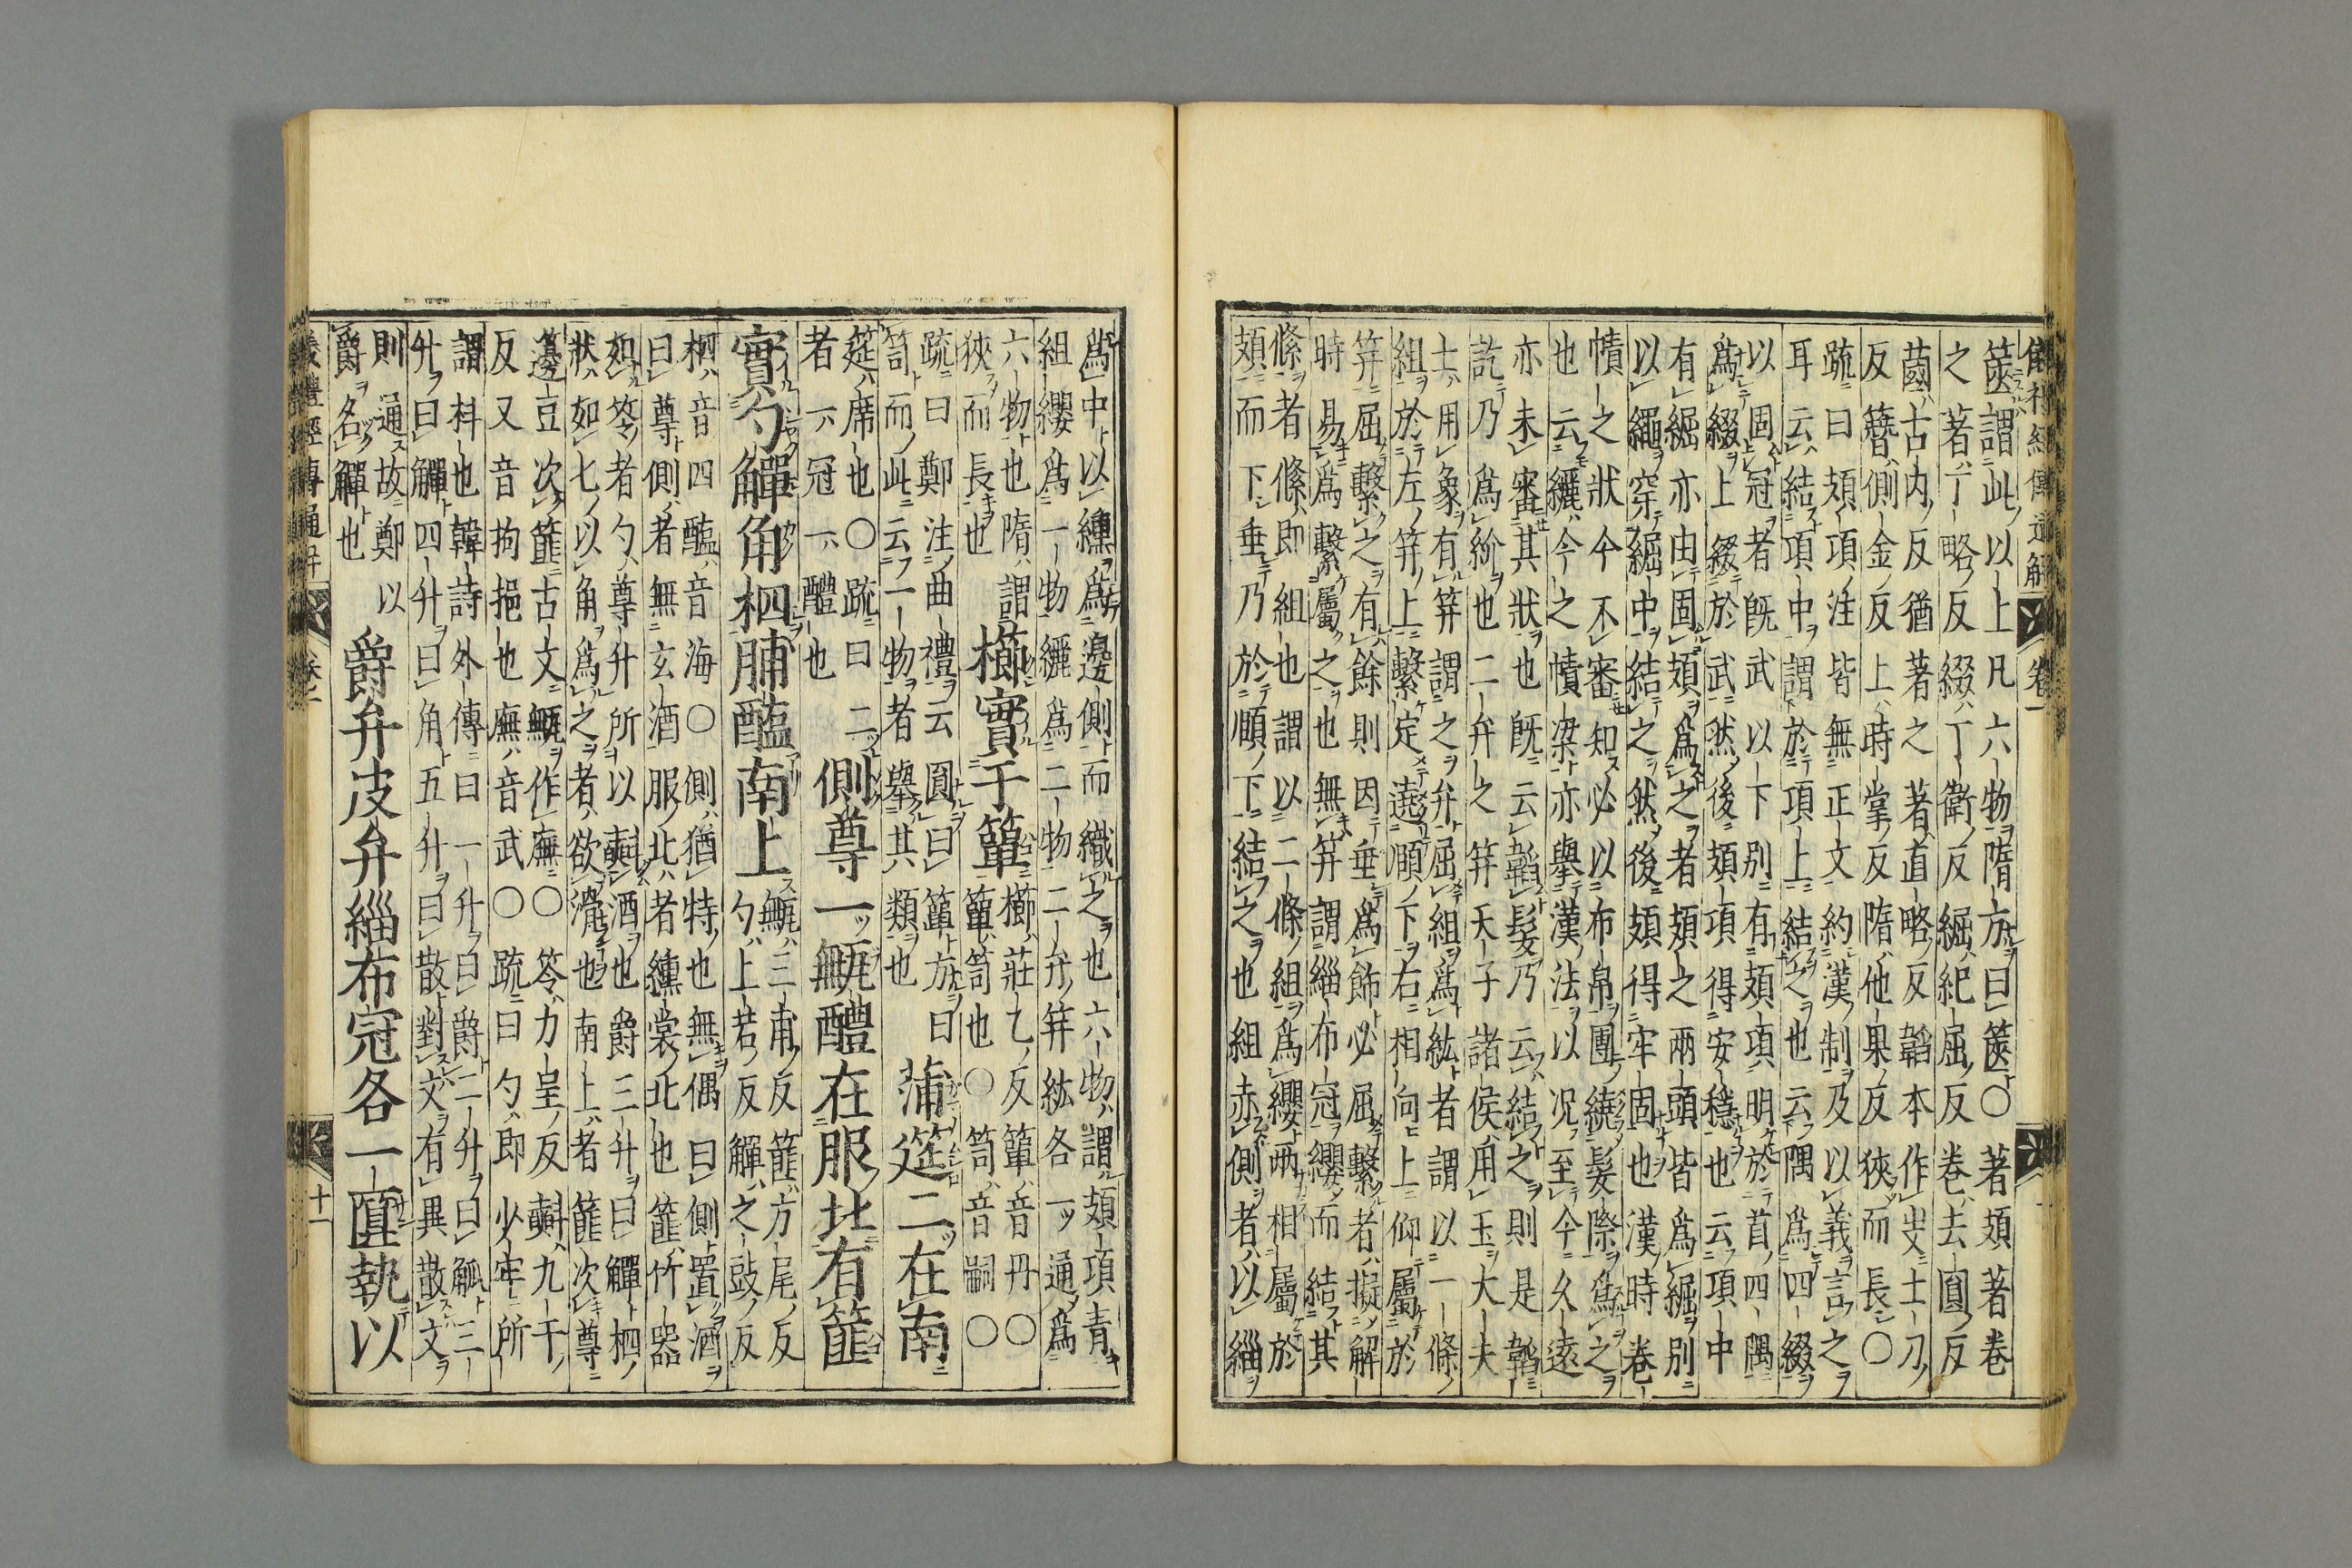 儀禮經傳通解 卷一
篋謂此以上凡六物隋方曰篋○著頍著卷
之著丁略反綴丁衛反𦀗紀屈反卷去圓反
古内反猶著之著直略反韜本作㞢士刀
反簪側金反上時掌反隋他果反狹而長○
疏曰頍項注皆無正文約漢制及以義言之
耳云結項中謂於項上結之也云隅爲四綴
以固冠者旣武以下別有頍項明於首四隅
爲綴上綴於武然後頍項得安穩也云項中
有𦀗亦由固頍爲之者頍之兩頭皆爲𦀗別
以繩穿𦀗中結之然後頍得牢固也漢時卷
幘之狀今不審知必以布帛圍繞髮際爲之
也云纚今之幘梁亦舉漢法以况至今久遠
亦未審其狀也旣云韜髮乃云結之則是韜
訖乃爲紒也二弁之笄天子諸侯用玉大夫
士用象有笄謂之弁屈組爲紘者謂以一條
組於左笄上繫定遶頤下右相向上仰屬於
笄屈繫之有餘則因垂爲飾必屈繫者擬解
時易爲繫屬之也無笄謂緇布冠纓而結其
絛者絛即組也謂以二條組爲纓兩相屬於
頍而下垂乃於頤下結之也組赤側者以緇
爲中以纁爲邊側而織之也六物謂頍項青
組纓爲一物纚爲二物二弁笄紘各一通爲
六物也隋謂
狹而長也
櫛實于簞
櫛莊乙反簞音丹○
簞笥也○笥音嗣○
疏曰鄭注曲禮云圓曰簞方曰
笥而此云一物者舉其類也
蒲筵二在南
筵席也○疏曰二
者一冠一醴也
側尊一甒醴在服北有篚
實勺觶角柶脯醢南上
甒三甫反篚方尾反
勺上若反觶之豉反
柶音四醢音海○側猶特也無偶曰側置酒
曰尊側者無玄酒服北者纁裳北也篚竹器
如笭者勺尊升所以㪺酒也爵三升曰觶柶
狀如匕以角爲之者欲滑也南上者篚次尊
籩豆次篚古文甒作廡○笭力呈反㪺九于
反又音拘挹也廡音武○疏曰勺即少牢所
謂枓也韓詩外傳曰一升曰爵二升曰觚三
升曰觶四升曰角五升曰散對文有異散文
則通故鄭以
爵名觶也
爵弁皮弁緇布冠各一匴執以
儀禮經傳通解 卷一 十一